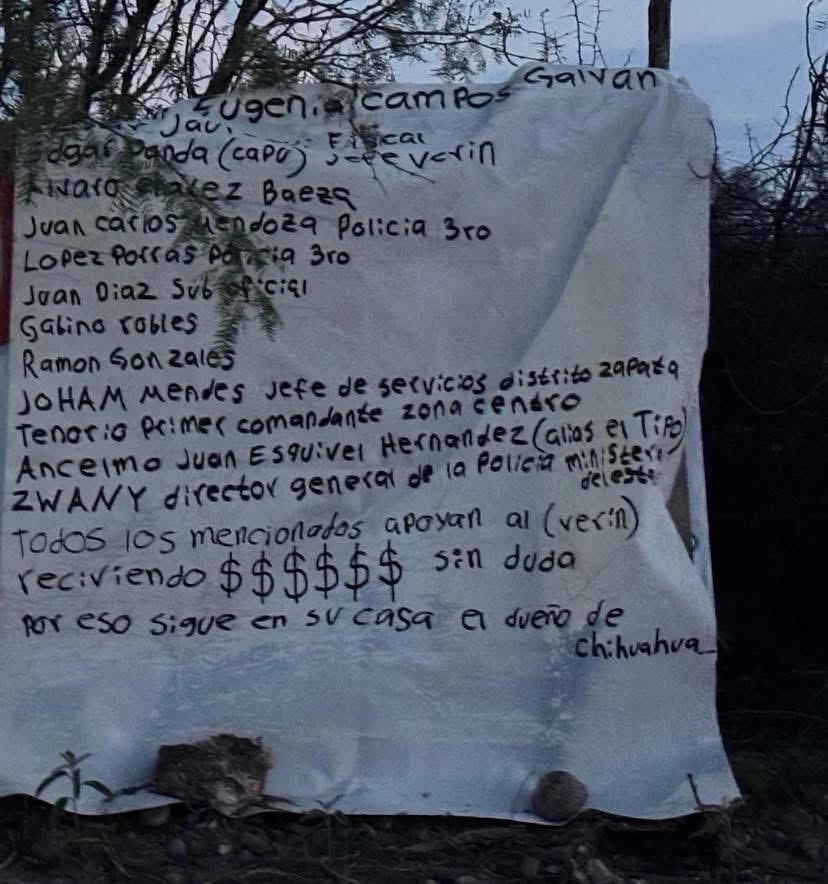 Eugenia campos Galvan
Javi Fiscal
Edgar Panda (capu) Jefe verin
Alvaro Chavez Baeza
Juan carlos Mendoza Policia 3ro
Lopez Porras Policia 3ro
Juan Diaz Sub oficial
Gabino robles
Ramon Gonzales
JOHAM Mendes Jefe de servicios distrito zapata
Tenorio primer comandante zona centro
Ancelmo Juan Esquivel Hernandez (alias el Tipo)
ZWANY director general de la Policia ministeri
del este
Todos los mencionados apoyan al (verin)
reciviendo $$$$$$ sin duda
por eso sigue en su casa el dueño de
chihuahua